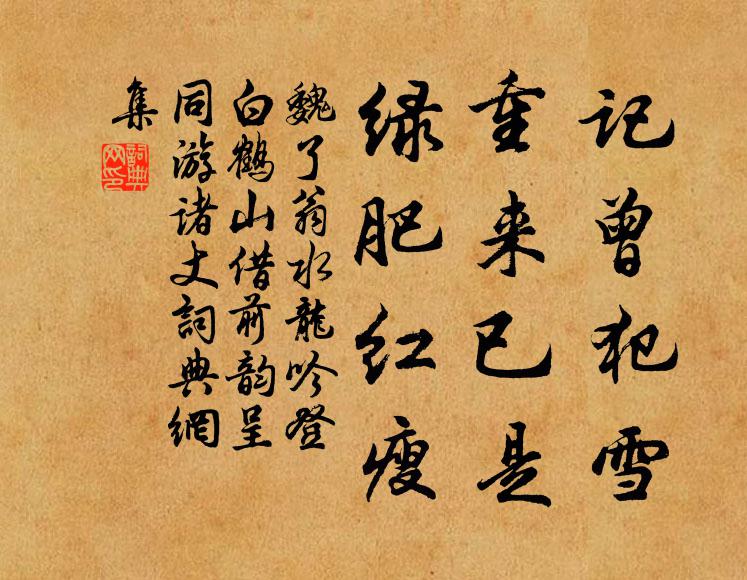 记曾犯雪
重来已是
绿肥红瘦
魏了翁水龍吟登
白鶴山借前韵呈
同游诸丈詞典網
集
詞典網印